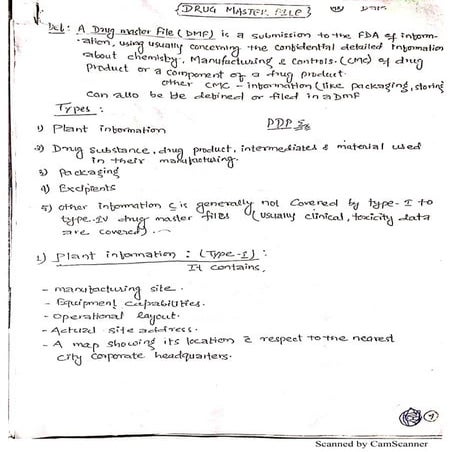 DRUG MASTER FILE
Def: A Drug master file (DMF) is a submission to the FDA of inform-
-ation, using usually concerning the confidential detailed information
about chemistry, Manufacturing & controls. (CMC) of drug
Product or a component of a drug product.
Other CMC - information (like packaging, storing
can also be be defined or filed in a DMF
Types :
1) Plant information
2) Drug substance, drug product, intermediates & material used
in their manufacturing.
3) Packaging
4) Excipients
5) Other information is generally not covered by type-I to
type-IV drug master files (usually clinical, toxicity data
are covered).
1) Plant information : (Type-I):
It contains,
- manufacturing site.
- Equipment capabilities.
- Operational layout.
- Actual site address.
- A map showing its location respect to the nearest
city corporate headquarters.
9
Scanned by CamScanner